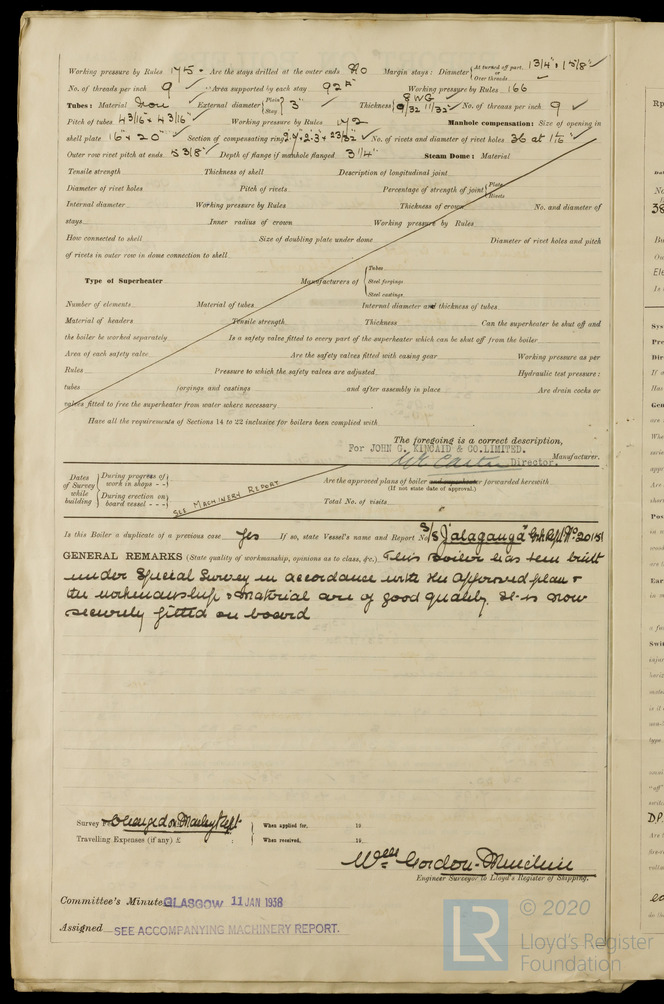 Working pressure by Rules 175 . Are the stays drilled at the outer ends No Margin stays: Diameter { At turned off part, or Over threads 1 3/4" 1 5/8" ✓
No. of threads per inch 9 ✓ Area supported by each stay Working pressure by Rules 166
Tubes: Material Iron External diameter { Plain Stay 3" Thickness { 8 WG 9/32 11/32 ✓ No. of threads per inch 9 ✓
Pitch of tubes 4 3/16" x 4 3/16" Working pressure by Rules 172 Manhole compensation: Size of opening in
shell plate 16" x 20" Section of compensating ring No. of rivets and diameter of rivet holes 36 at 1 1/16" ✓
Outer row rivet pitch at ends 5 3/8" Depth of flange if manhole flanged 3 1/4" Steam Dome: Material
Tensile strength Thickness of shell Description of longitudinal joint
Diameter of rivet holes Pitch of rivets Percentage of strength of joint { Plate Rivets
Internal diameter Working pressure by Rules Thickness of crown No. and diameter of
stays Inner radius of crown Working pressure by Rules
How connected to shell Size of doubling plate under dome Diameter of rivet holes and pitch
of rivets in outer row in dome connection to shell
Type of Superheater Manufacturers of { Tubes Steel forgings Steel castings
Number of elements Material of tubes Internal diameter and thickness of tubes
Material of headers Tensile strength Thickness Can the superheater be shut off and
the boiler be worked separately Is a safety valve fitted to every part of the superheater which can be shut off from the boiler
Area of each safety valve Are the safety valves fitted with easing gear Working pressure as per
Rules Pressure to which the safety valves are adjusted Hydraulic test pressure:
tubes forgings and castings and after assembly in place Are drain cocks or
valves fitted to free the superheater from water where necessary
Have all the requirements of Sections 14 to 22 inclusive for boilers been complied with
The foregoing is a correct description,
For JOHN G. KINCAID & CO. LIMITED. Manufacturer.
Director.
Dates of Survey while building { During progress of work in shops - - } { During erection on board vessel - - - }
SEE MACHINERY REPORT
Are the approved plans of boiler and superheater forwarded herewith
(If not state date of approval.)
Total No. of visits
Is this Boiler a duplicate of a previous case Yes If so, state Vessel's name and Report No. S/S "Jalaganga" Grk Rpt No. 20151
GENERAL REMARKS (State quality of workmanship, opinions as to class, &c.) This Boiler has been built
under Special Survey in accordance with the approved plan &
the workmanship & material are of good quality. It is now
securely fitted on board
Survey Fee Charged on Machy Rpt When applied for, 19
Travelling Expenses (if any) £ : : When received, 19
Wm Gordon-
Engineer Surveyor to Lloyd's Register of Shipping.
Committee's Minute GLASGOW 11 JAN 1938
Assigned SEE ACCOMPANYING MACHINERY REPORT.
LR © 2020
Lloyd's Register
Foundation